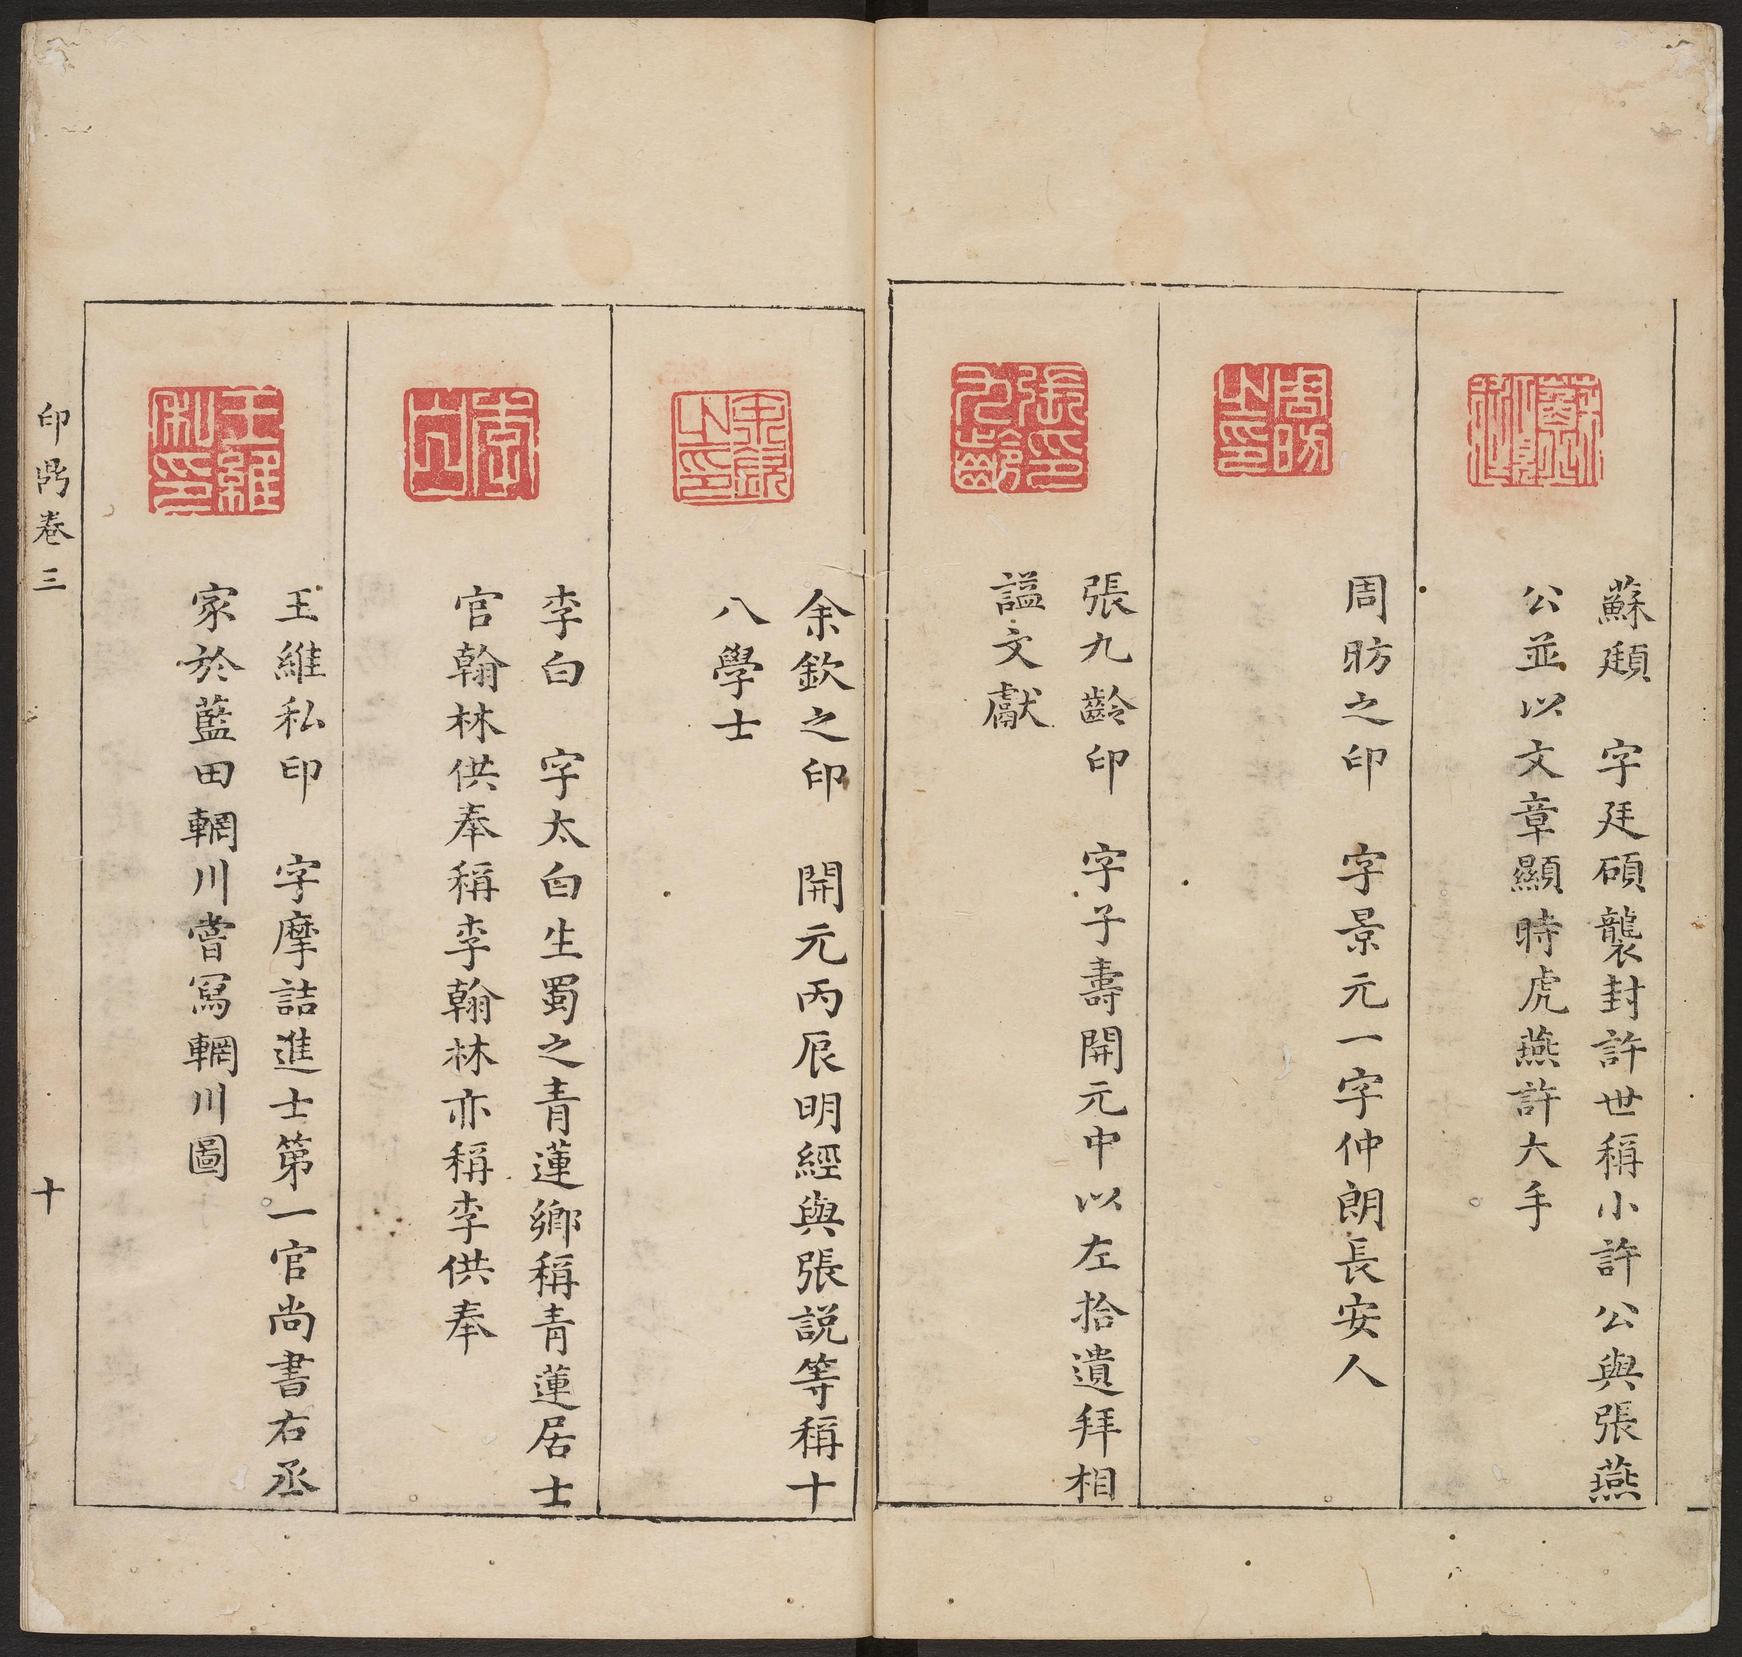 蘇頲　字廷碩襲封許世稱小許公與張燕
公並以文章顯時虎燕許大手
周昉之印　字景元一字仲朗長安人
張九齡印　字子壽開元中以左拾遺拜相
謚文獻
余欽之印　開元丙辰明經與張説等稱十
八學士
李白　字太白生蜀之青蓮鄉稱青蓮居士
官翰林供奉稱李翰林亦稱李供奉
王維私印　字摩詰進士第一官尚書右丞
家於藍田輞川嘗寫輞川圖
卷三
十
周昉之印
張印九齡
余欽之印
李白
王維私印